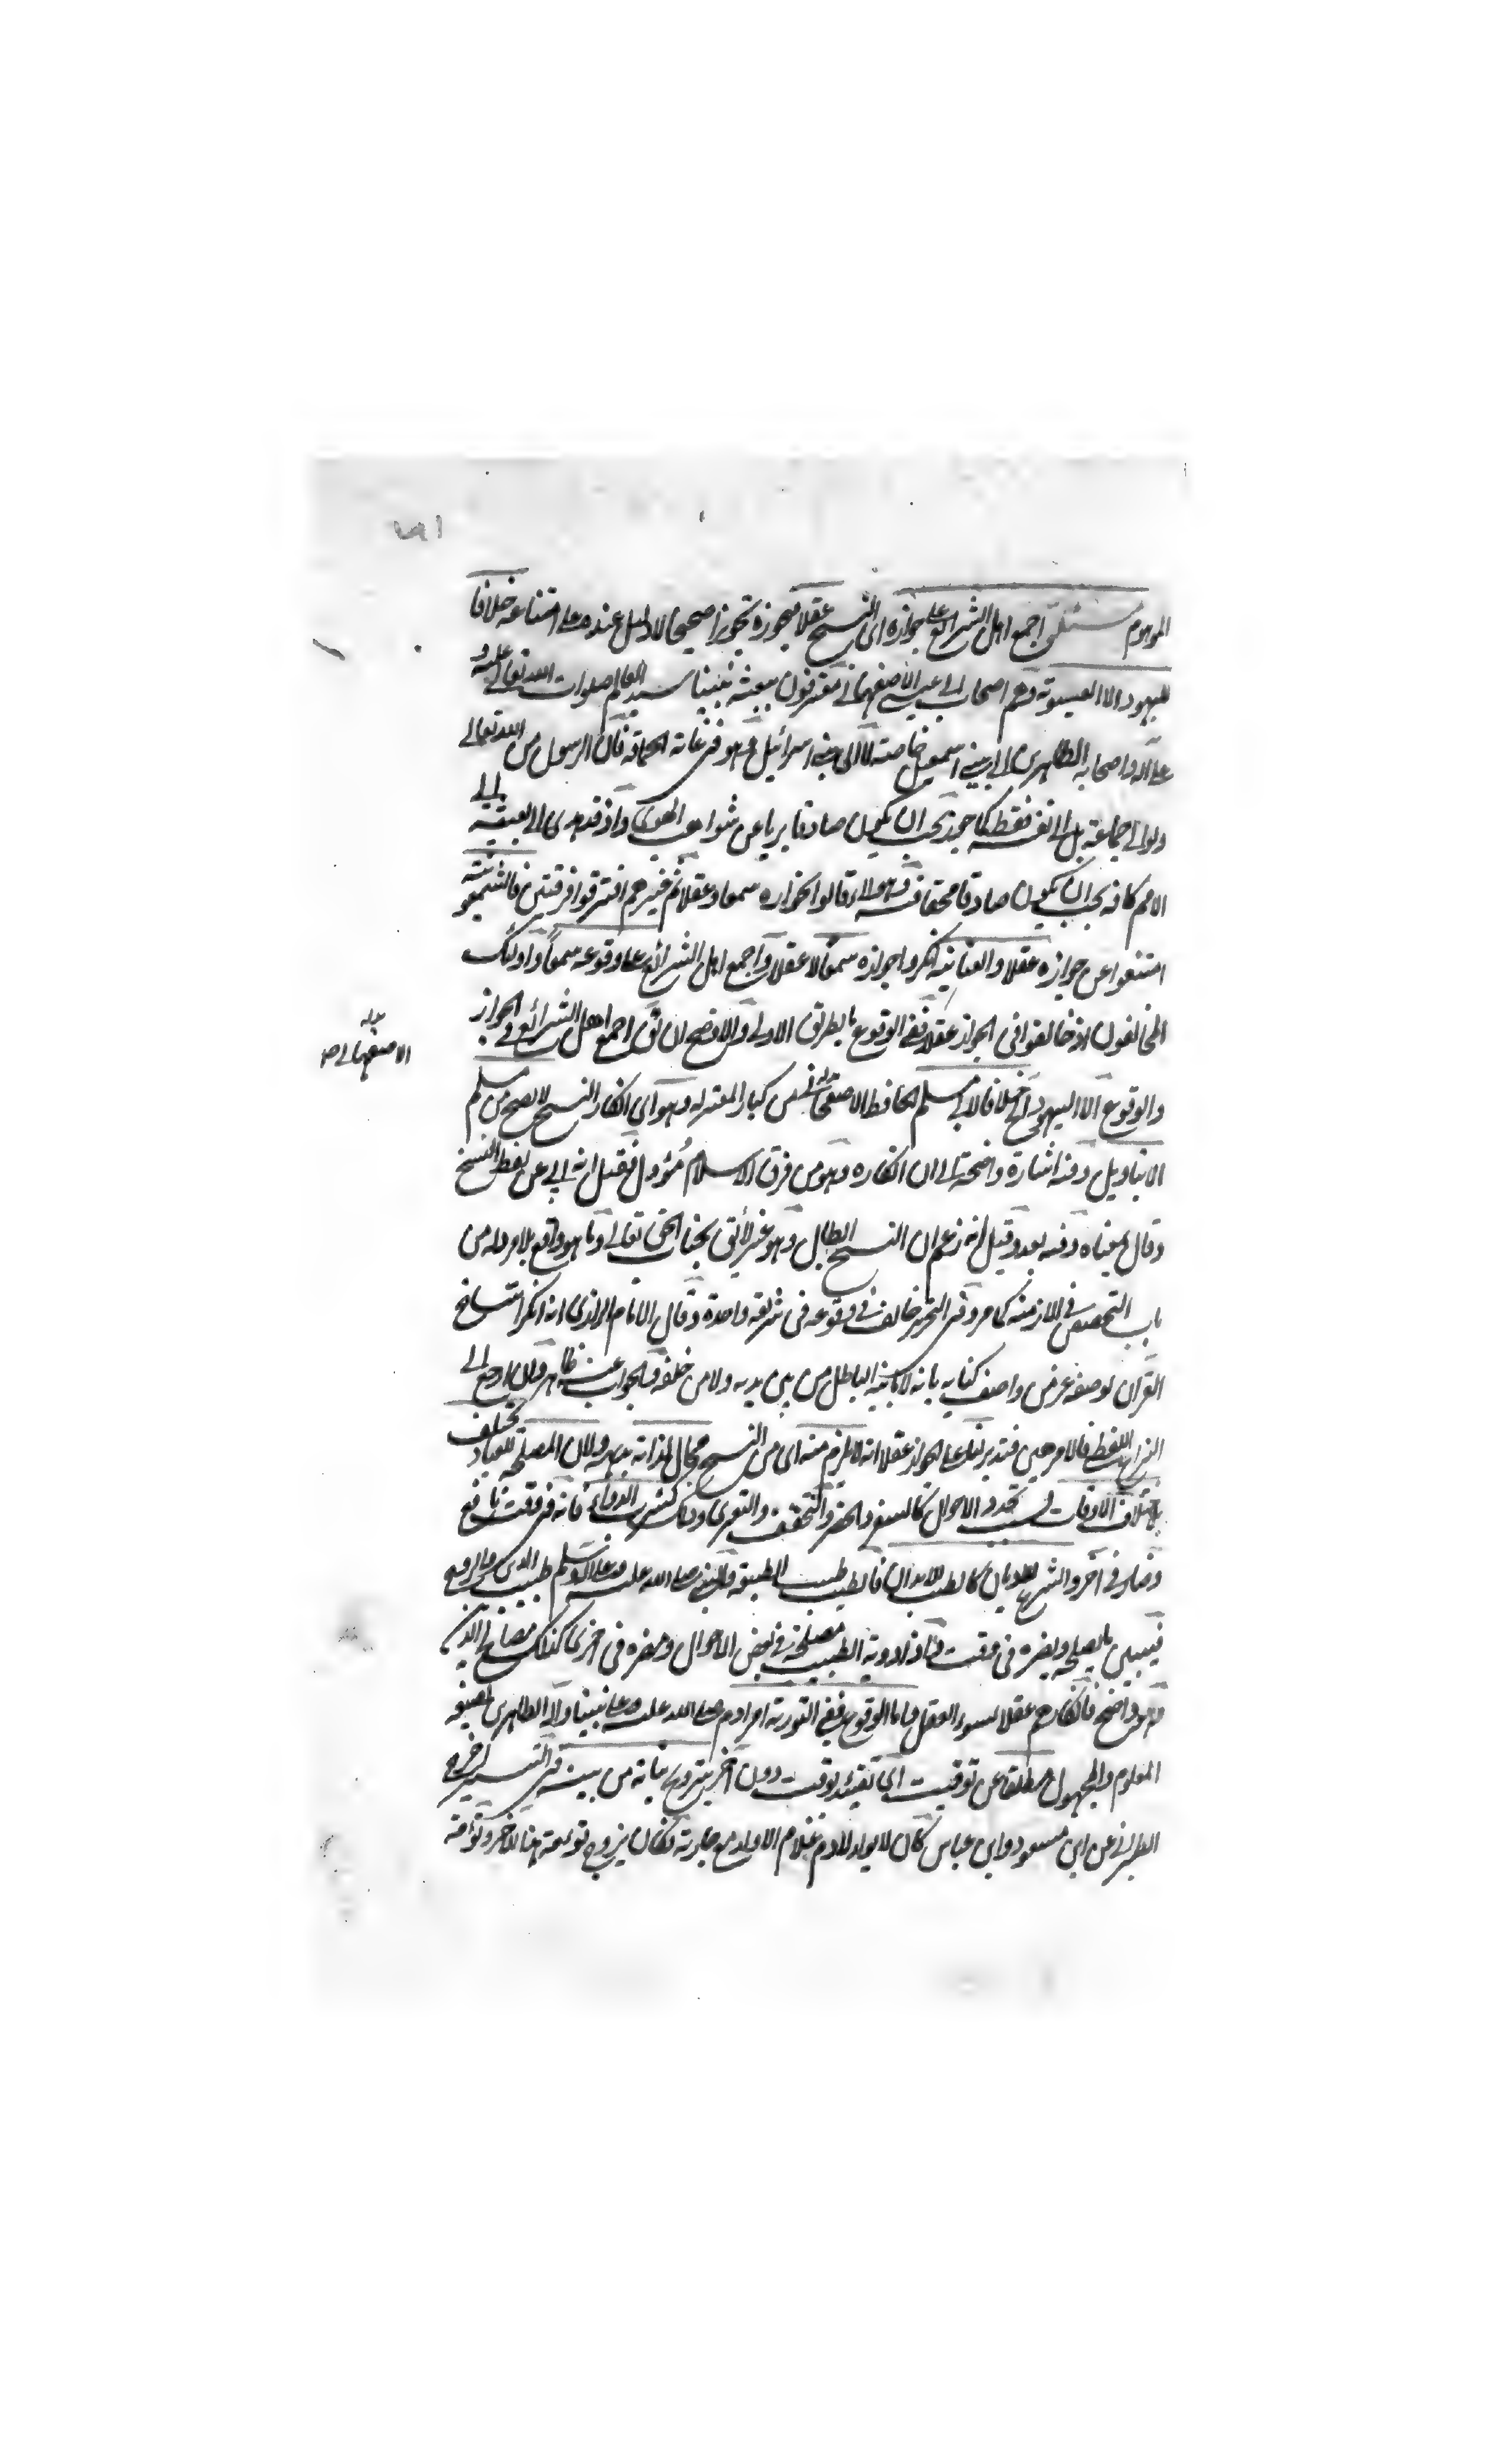 الموهوم مسئلة اجمع اهل الشرائع على جوازه اى النسخ عقلا فيجوزه تجويزا صحيحا لا دليل عنده على امتناعه خلافا
لليهود الا العيسوية وهم اصحاب ابى عيسى الاصفهانى معترفون ببعثة نبينا سيد العالم صلوات الله تعالى عليه و
على آله واصحابه الطاهرين الى بنى اسمعيل خاصة لا الى بنى اسرائيل وهو فى غاية الحماقة فان الرسول من الله تعالى
ولو الى جماعة بل الى نفسه فقط كما جوز يجب ان يكون صادقا بريا عن شوائب الهوى واذ قد ادعى البعثة الى
الامم كافة يجب ان يكون صادقا محقا فيه وهؤلاء قالوا بجوازه سمعا وعقلا ثم غيرهم افترقوا فرقتين فالشمعونية
امتنعوا عن جوازه عقلا والعنانية انكروا جوازه سمعا لا عقلا واجمع اهل الشرائع على وقوعه سمعا واولئك
المخالفون اذ خالفوا فى الجواز عقلا ففى الوقوع بالطريق الاولى والاوضح ان يقول اجمع اهل الشرائع فى الجواز
والوقوع الا اليهود الخ خلافا لابى مسلم الحافظ الاصفهانى من كبار المعتزلة وهو اى انكار النسخ لا يصح من مسلم
الا بتاويل وفيه اشارة واضحة الى ان انكاره وهو من فرق الاسلام مؤول فقيل انه ابى عن لفظ النسخ
وقال بمعناه وفيه بعد وقيل انه زعم ان النسخ ابطال وهو غير لائق بجناب الحق تعالى وما هو واقع بلا مرد له من
باب التخصيص فى الازمنة كما مر وفى التحرير خالف فى وقوعه فى شريعة واحدة وقال الامام الرازى انه انكر انتساخ
القرآن لوصفه عز من واصف كتابه بانه لا ياتيه الباطل من بين يديه ولا من خلفه والجواب عنه ظاهر وان ارجع الى
النزاع اللفظى فالامر هين فتدبر لنا على الجواز عقلا انه لا يلزم منه اى من النسخ محال لذاته بديهة ولان المصلحة للعباد تختلف
باختلاف الاوقات وبحسب تجدد الاحوال كالسفر والحضر والتخفف والتعرى وذلك كشرب الدواء فانه فى وقت نافع
وضار فى آخر والشرع للاديان كالطب للابدان فالطبيب طبيب الطبيعة والنبى صلى الله عليه وعلى آله وسلم طبيب الدين والروح
فيبين ما يصلحه ويضره فى وقت وكما ان ادوية الطبيب مصلحة فى بعض الاحوال ومضرة فى اخرى كذلك مصالح الدين
فهو واضح فانكارهم عقلا لسوء العقل واما الوقوع ففى التورية امر آدم صلى الله عليه وعلى نبينا وآله الطاهرين بصيغة
المعلوم والمجهول مطلقا عن توقيت اى تقييد بوقت دون آخر بتزويج بناته من بنيه وفى التيسير اخرج
الطبرانى عن ابن مسعود وابن عباس كان لا يولد لآدم غلام الا ولد معه جارية فكان يزوج توءمة هذا للآخر وتوءمة
الاصفهانى صه